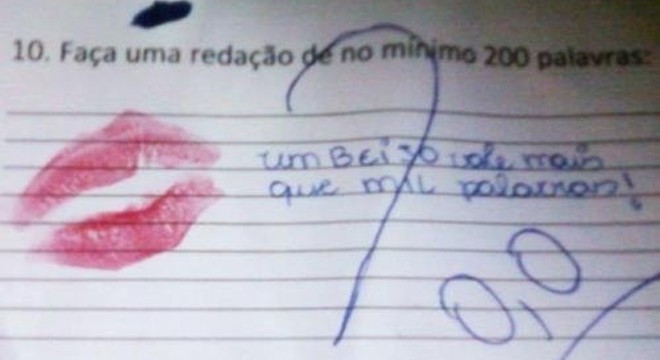 10. Faça uma redação de no mínimo 200 palavras:
um BEiJO vale mais
que MIL palavras!
0,0